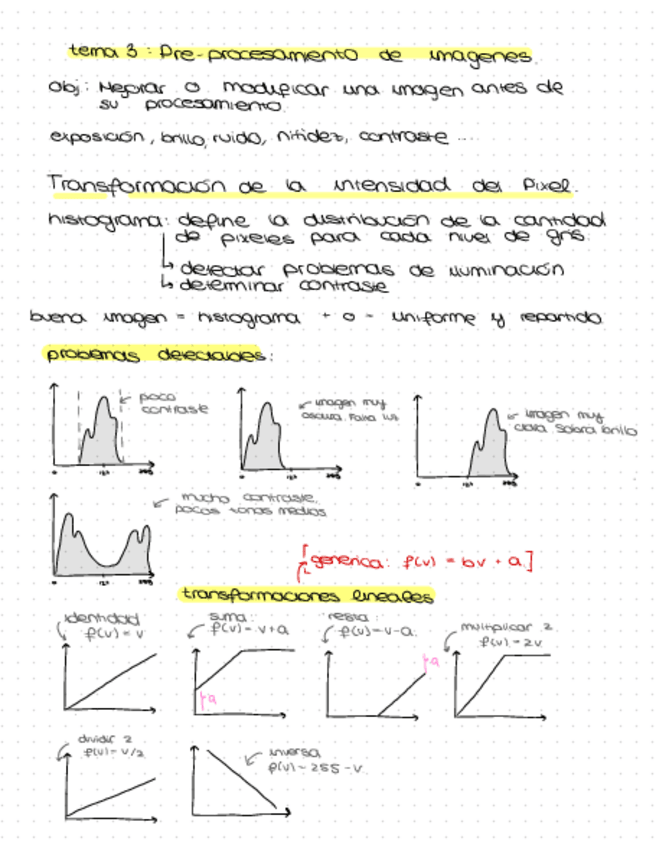 tema 3 : Pre-procesamiento de imagenes.
Obj: Mejorar o modificar una imagen antes de
su procesamiento.
exposición, brillo, ruido, nitidez, contraste ....
Transformación de la intensidad del Pixel.
histograma: define la distribución de la cantidad
de pixeles para cada nivel de gris.
↳ detectar problemas de iluminación
↳ determinar contraste
buena imagen = histograma + o - uniforme y repartido.
problemas detectables:
poco
contraste
imagen muy
oscura. Falta luz
imagen muy
clara. Sobra brillo
0 127 255
0 127 255
0 127 255
mucho contraste,
pocos tonos medios
0 127 255
[generica: f(v) = bv + a]
transformaciones lineales
identidad
f(v) = v
suma:
f(v) = v+a
a
resta:
f(v)=v-a.
a
multiplicar 2.
f(v) = 2v
dividir 2
f(v)= v/2
inversa
f(v) = 255 - v